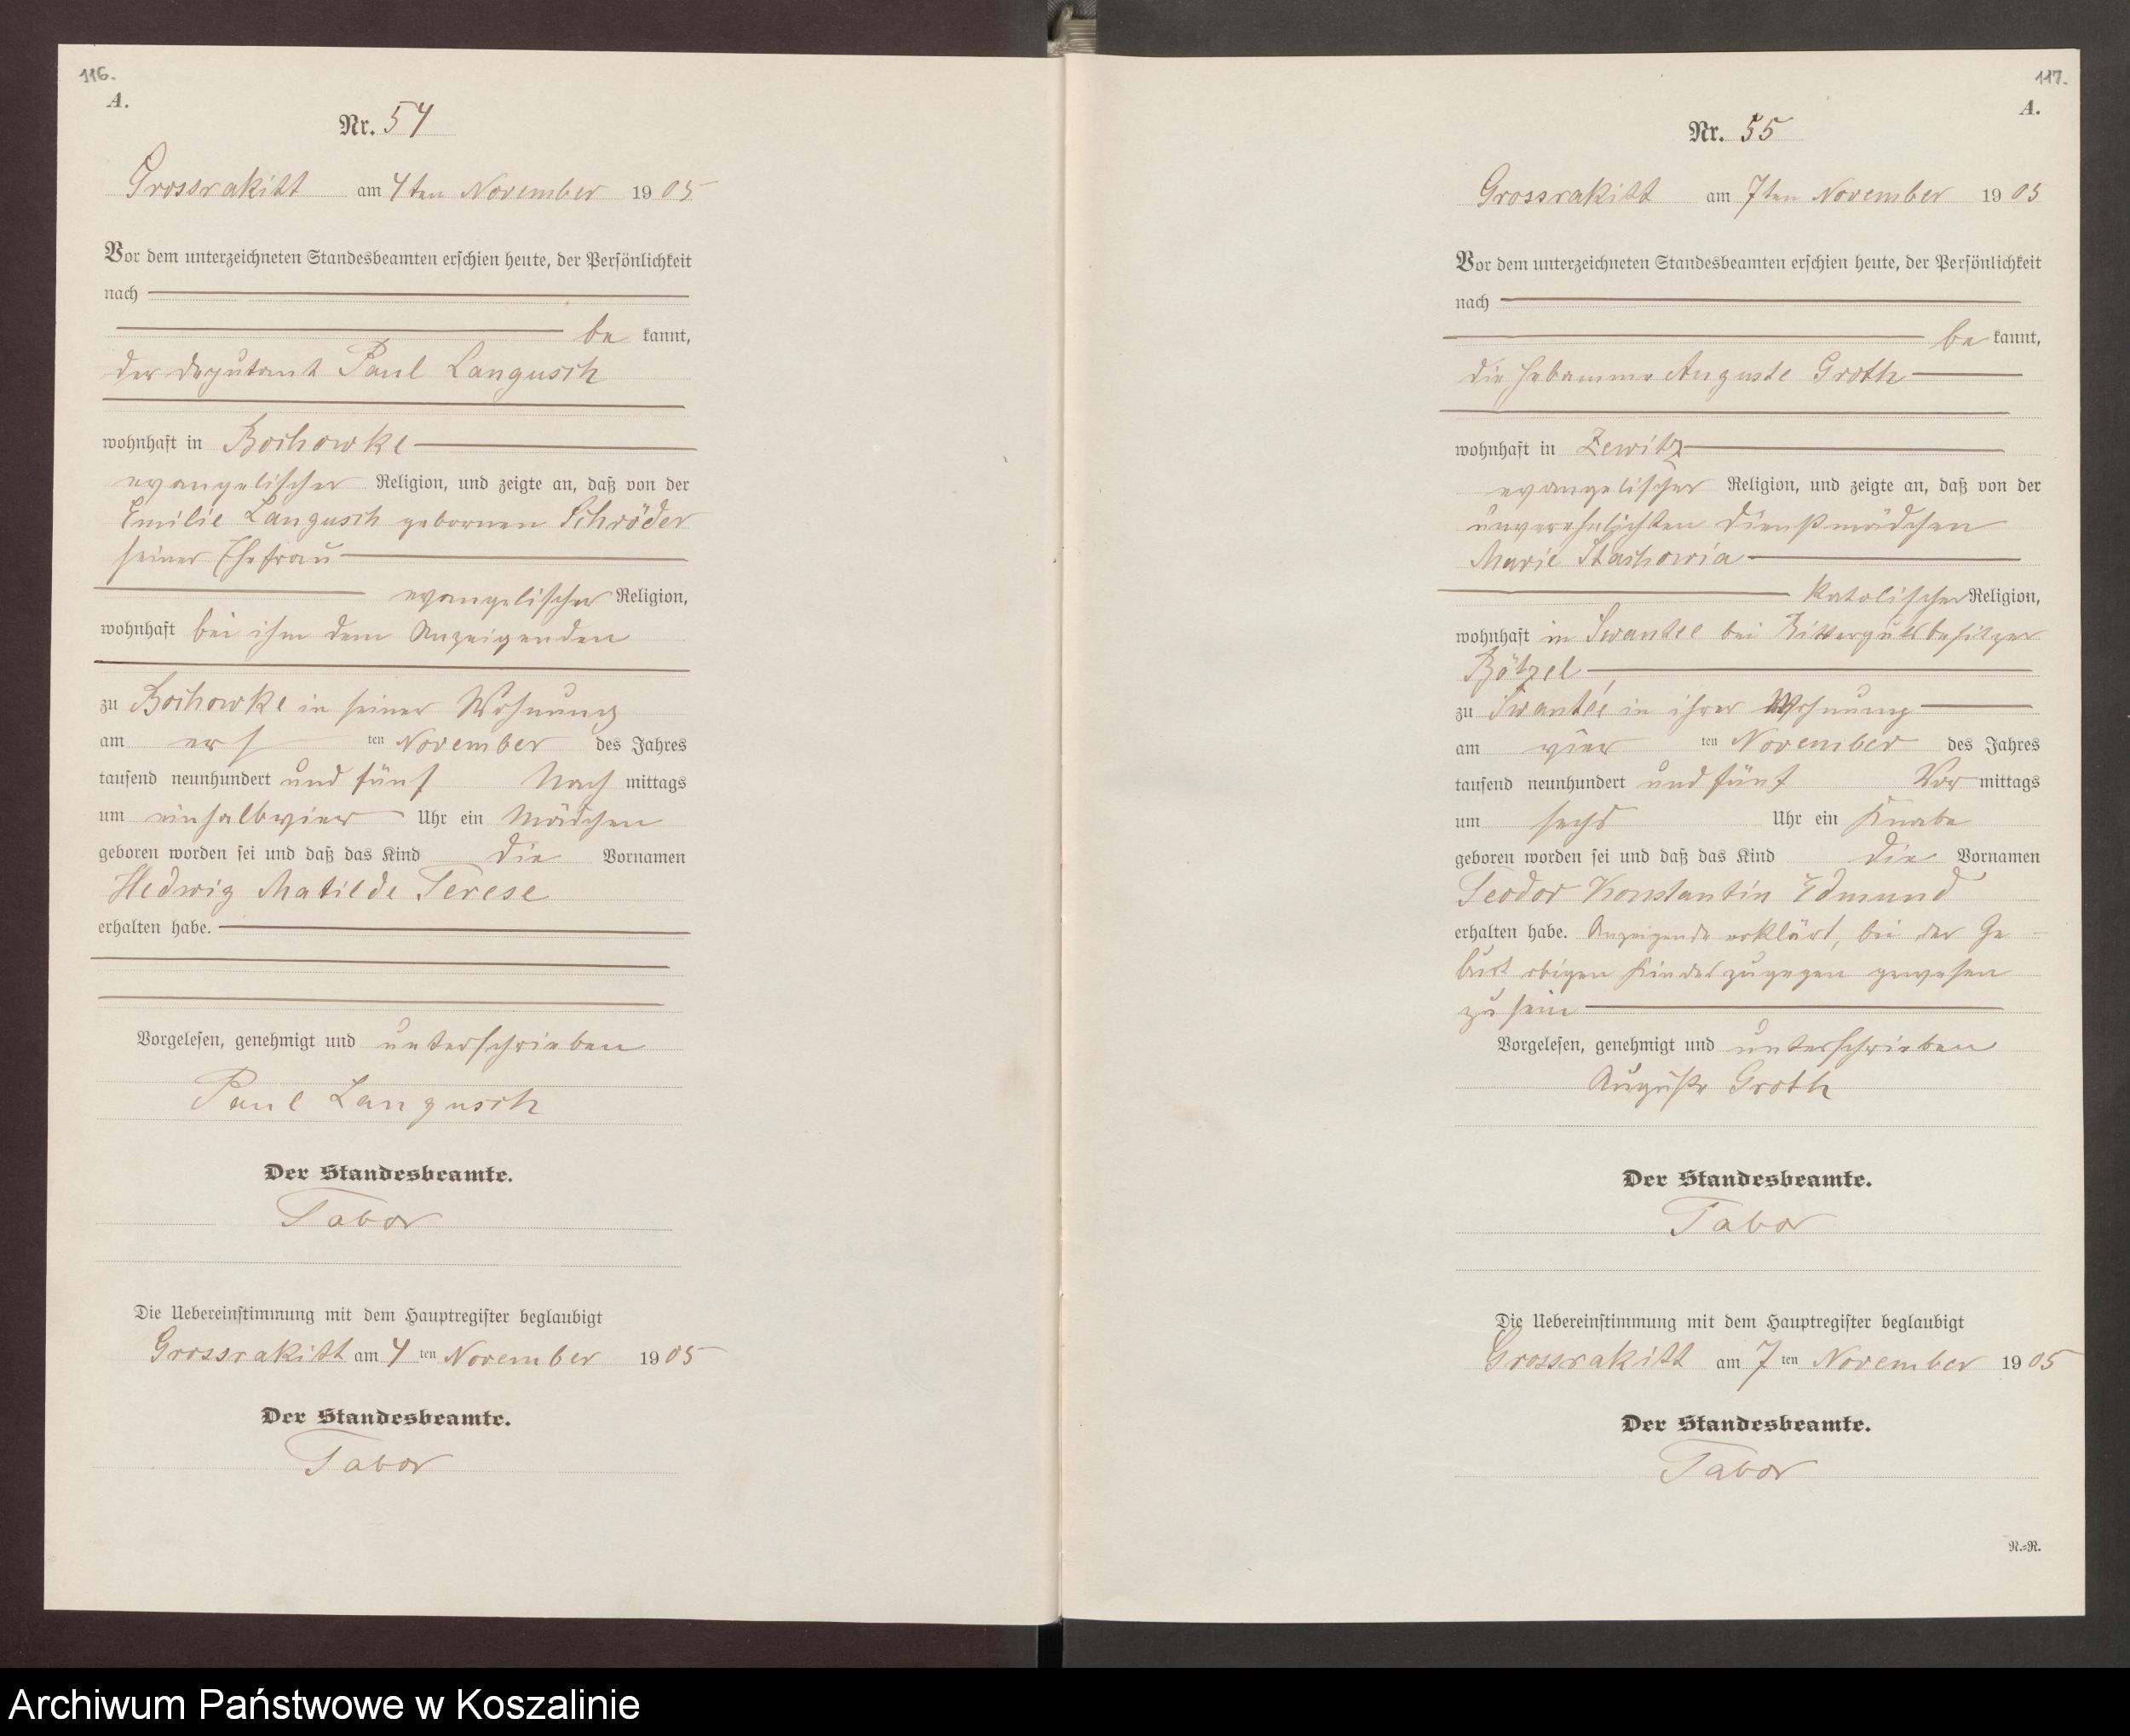 116.
A.
Nr. 54
Grossrakitt am 4ten November 1905
Vor dem unterzeichneten Standesbeamten erschien heute, der Persönlichkeit
nach
be kannt,
der Deputant Paul Langusch
wohnhaft in Bochowke
evangelischer Religion, und zeigte an, daß von der
Emilie Langusch gebornen Schröder
seiner Ehefrau
evangelischer Religion,
wohnhaft bei ihm dem Anzeigenden
zu Bochowke in seiner Wohnung
am ers ten November des Jahres
tausend neunhundert und fünf Nach mittags
um einhalbvier Uhr ein Mädchen
geboren worden sei und daß das Kind die Vornamen
Hedwig Matilde Terese
erhalten habe.
Vorgelesen, genehmigt und unterschrieben
Paul Langusch
Der Standesbeamte.
Tabor
Die Uebereinstimmung mit dem Hauptregister beglaubigt
Grossrakitt am 4 ten November 1905
Der Standesbeamte.
Tabor
117.
A.
Nr. 55
Grossrakitt am 7ten November 1905
Vor dem unterzeichneten Standesbeamten erschien heute, der Persönlichkeit
nach
be kannt,
die Hebamme Auguste Groth
wohnhaft in Zewitz
evangelischer Religion, und zeigte an, daß von der
unverehelichten Dienstmädchen
Marie
katolischer Religion,
wohnhaft in bei Rittergutsbesitzer
zu in ihrer Wohnung
am vier ten November des Jahres
tausend neunhundert und fünf Vor mittags
um sechs Uhr ein Knabe
geboren worden sei und daß das Kind die Vornamen
Teodor Konstantin Edmund
erhalten habe. Anzeigende erklärt, bei der Ge-
burt obigen Kindes zugegen gewesen
zu sein
Vorgelesen, genehmigt und unterschrieben
Auguste Groth
Der Standesbeamte.
Tabor
Die Uebereinstimmung mit dem Hauptregister beglaubigt
Grossrakitt am 7 ten November 1905
Der Standesbeamte.
Tabor
R.=R.
Archiwum Państwowe w Koszalinie